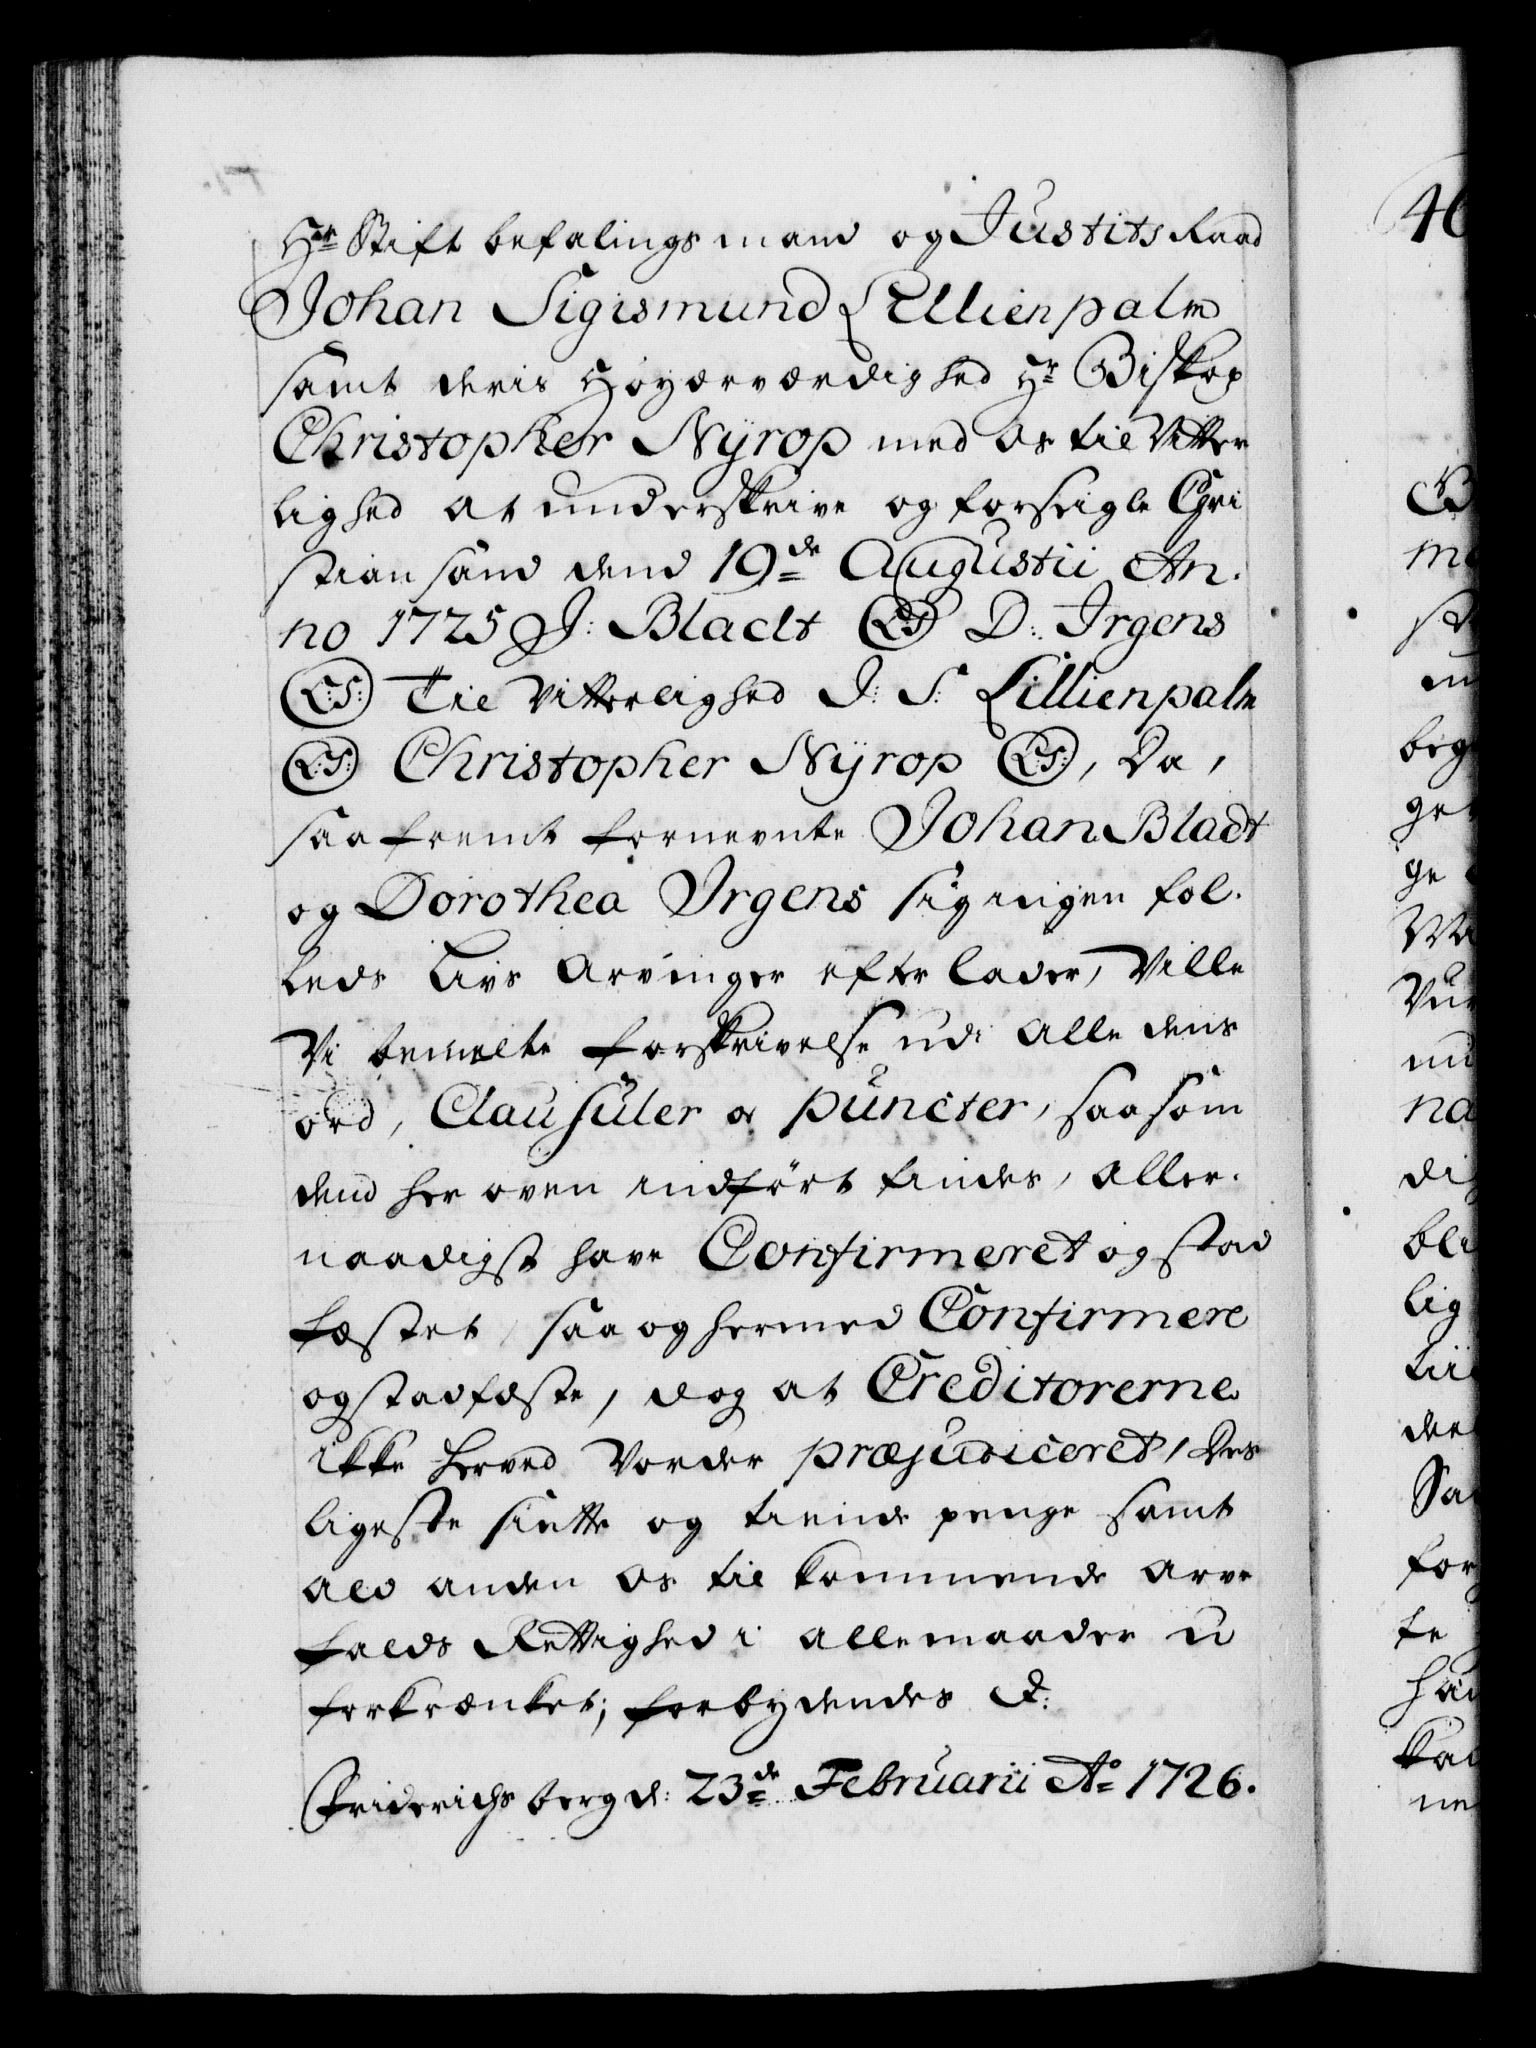 Hr Stiftbefalingsmand og Justits Raad
Johan Sigismund Lillienpalm
samt deris Høyærværdighed Hr Biskop
Christopher Nÿrop med os til Vitter
lighed at underskrive og forseigle Chri
stiansand dend 19de Augustii An.
no 1725 J: Bladt (LS) D: Irgens
(L:S:) Til Vitterlighed J: S: Lillienpalm
(L:S:) Christopher Nÿrop (L:S:), Da,
saafremt fornevnte Johan Bladt
og Dorothea Irgens sig ingen fel.
leds Livs Arvinger efterlader, Ville
Vi bemelte forskrivelse udi alle dens
ord, Clausuler og puncter, saasom
dend her oven indført findes, aller.
naadigst have Confirmeret og stad
fæstet, saa og hermed Confirmere
og stadfæste, dog at Creditorerne
ikke herved Vorder præjudiceret, Des
ligeste siette og tiende penge samt
ald anden os tilkommende arve
falds Rettighed i alle maader u
forkrænket; forbydendes &:
Friderichsberg d: 23de Februarii Ao 1726.
46